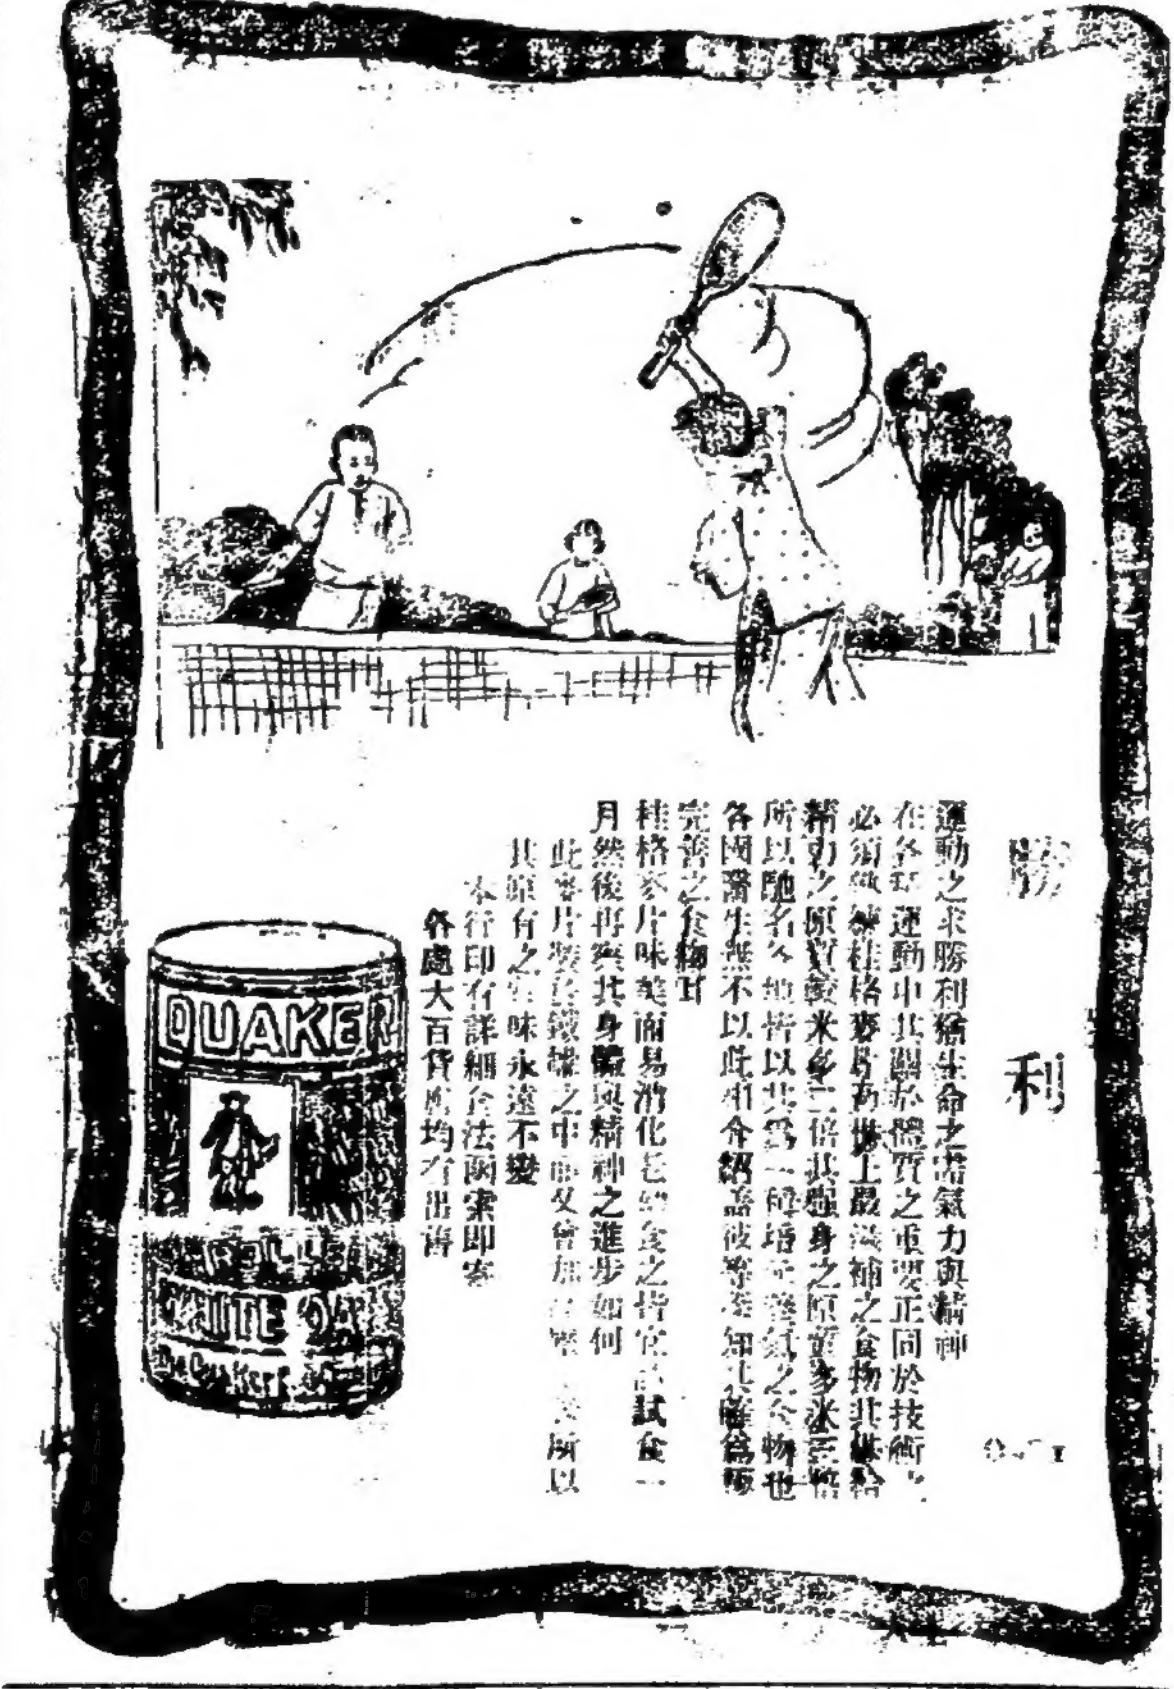 勝利
運動之求勝利猶生命之需氣力與精神
在各項運動中其關於體質之重要正同於技術
必須鍛練桂格麥片為世上最滋補之食物其供給
精力之原質較米多二倍其强身之原質多米三倍
所以馳名各地皆以其為一種培元之食物也
各國醫生無不以此相介紹諒彼等深知其確為極
完善之食物耳
桂格麥片味美而易消化老幼食之皆宜試食一
月然後再察其身體與精神之進步如何
此麥片裝於鐵罐之中所以
其原有之味永遠不變
本行印有詳細食法函索即寄
各處大百貨店均有出售
QUAKER
WHITE OATS